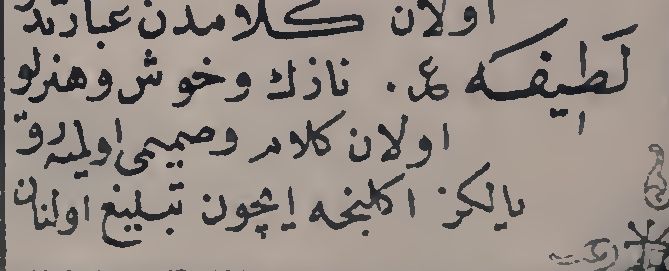 اولان كلامدن عبارتدر
لطيفه ع. نازك وخوش وهنرلو
اولان كلام وصميمى اوليه رق
يالكز اكلنجه ايچون تبليغ اولنان